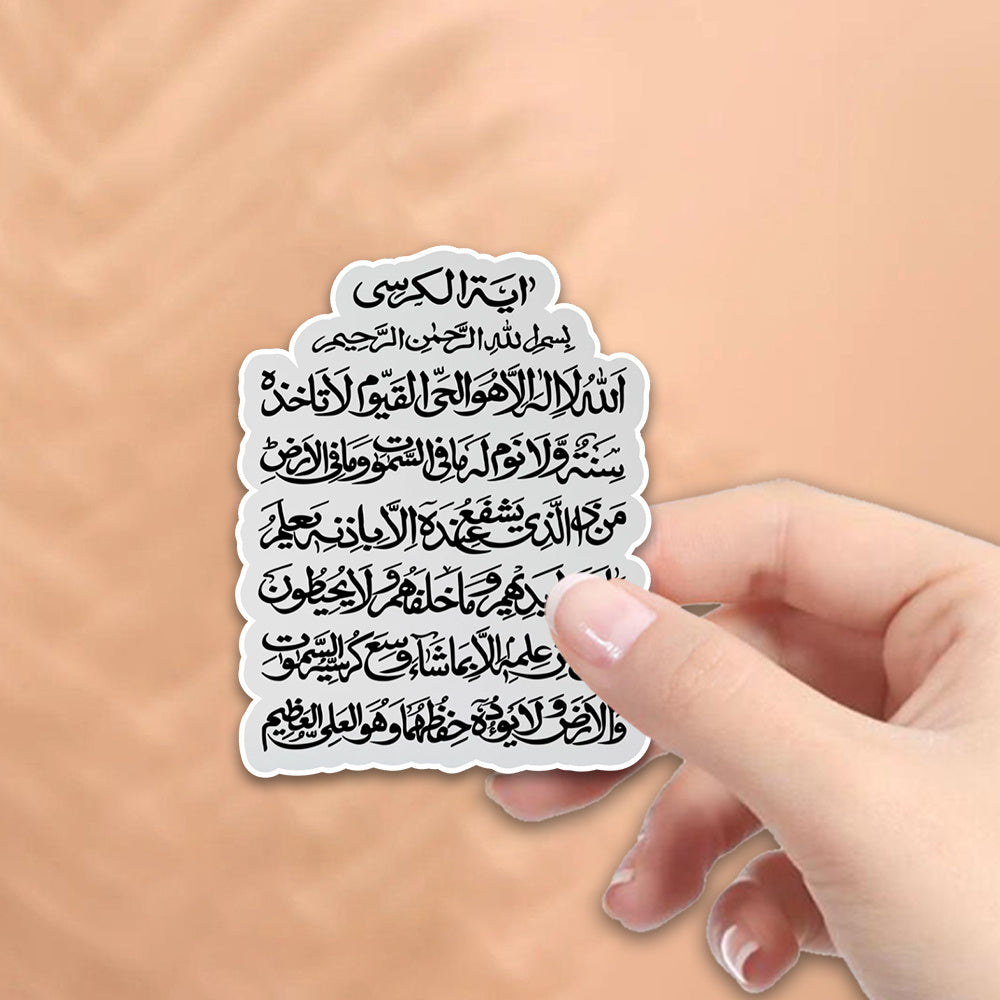 اية الكرسى
بسم الله الرحمٰن الرحيم
اَللّٰهُ لَا اِلٰهَ اِلَّا هُوَ الحَىُّ القَيُّوم لَا تَاخذه
سِنَةٌ وَّلَا نَوم لَه مَا فِى السَّمٰوٰت وَمَا فِى الاَرض
مَن ذَا الَّذِى يَشفَعُ عِندَه اِلَّا بِاِذنِه يَعلَمُ
اَيدِيهِم وَمَا خَلفَهُم وَلَا يُحِيطُونَ
عِلمِه اِلَّا بِمَا شَآءَ وَسِعَ كُرسِيُّه السَّمٰوٰت
وَالاَرضَ وَلَا يَؤُدُه حِفظُهُمَا وَهُوَ العَلِىُّ العَظِيم